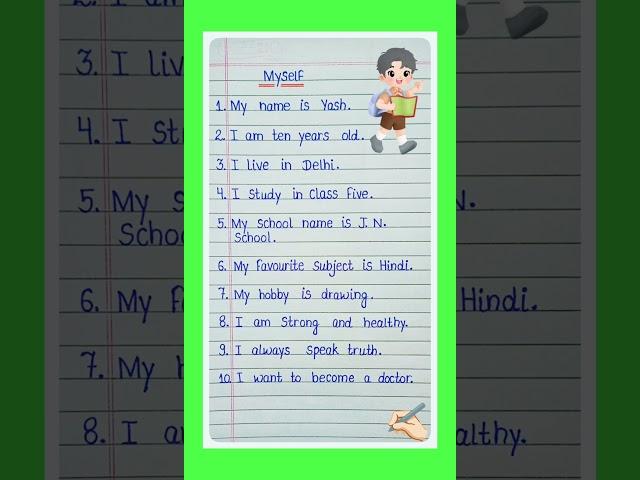 Myself
1. My name is Yash.
2. I am ten years old.
3. I live in Delhi.
4. I study in class five.
5. My school name is J. N.
School.
6. My favourite subject is Hindi.
7. My hobby is drawing.
8. I am strong and healthy.
9. I always speak truth.
10. I want to become a doctor.